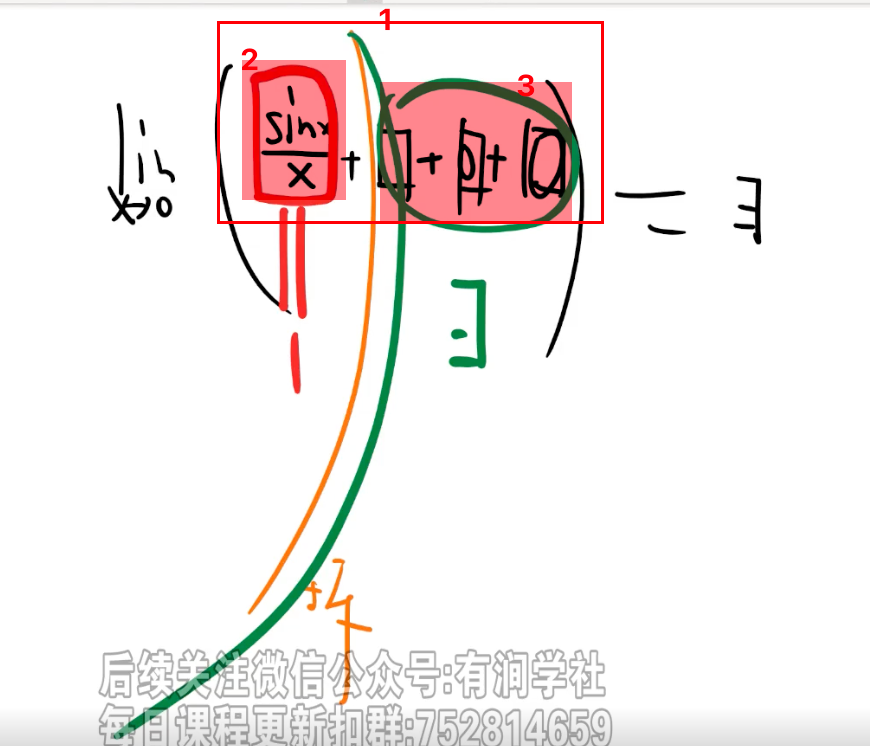 1
2
3
lim x→0 ( sinx/x + □ + □ + □ ) = ∃
||
1
∃
拆
后续关注微信公众号:有涧学社
每日课程更新扣群:752814659